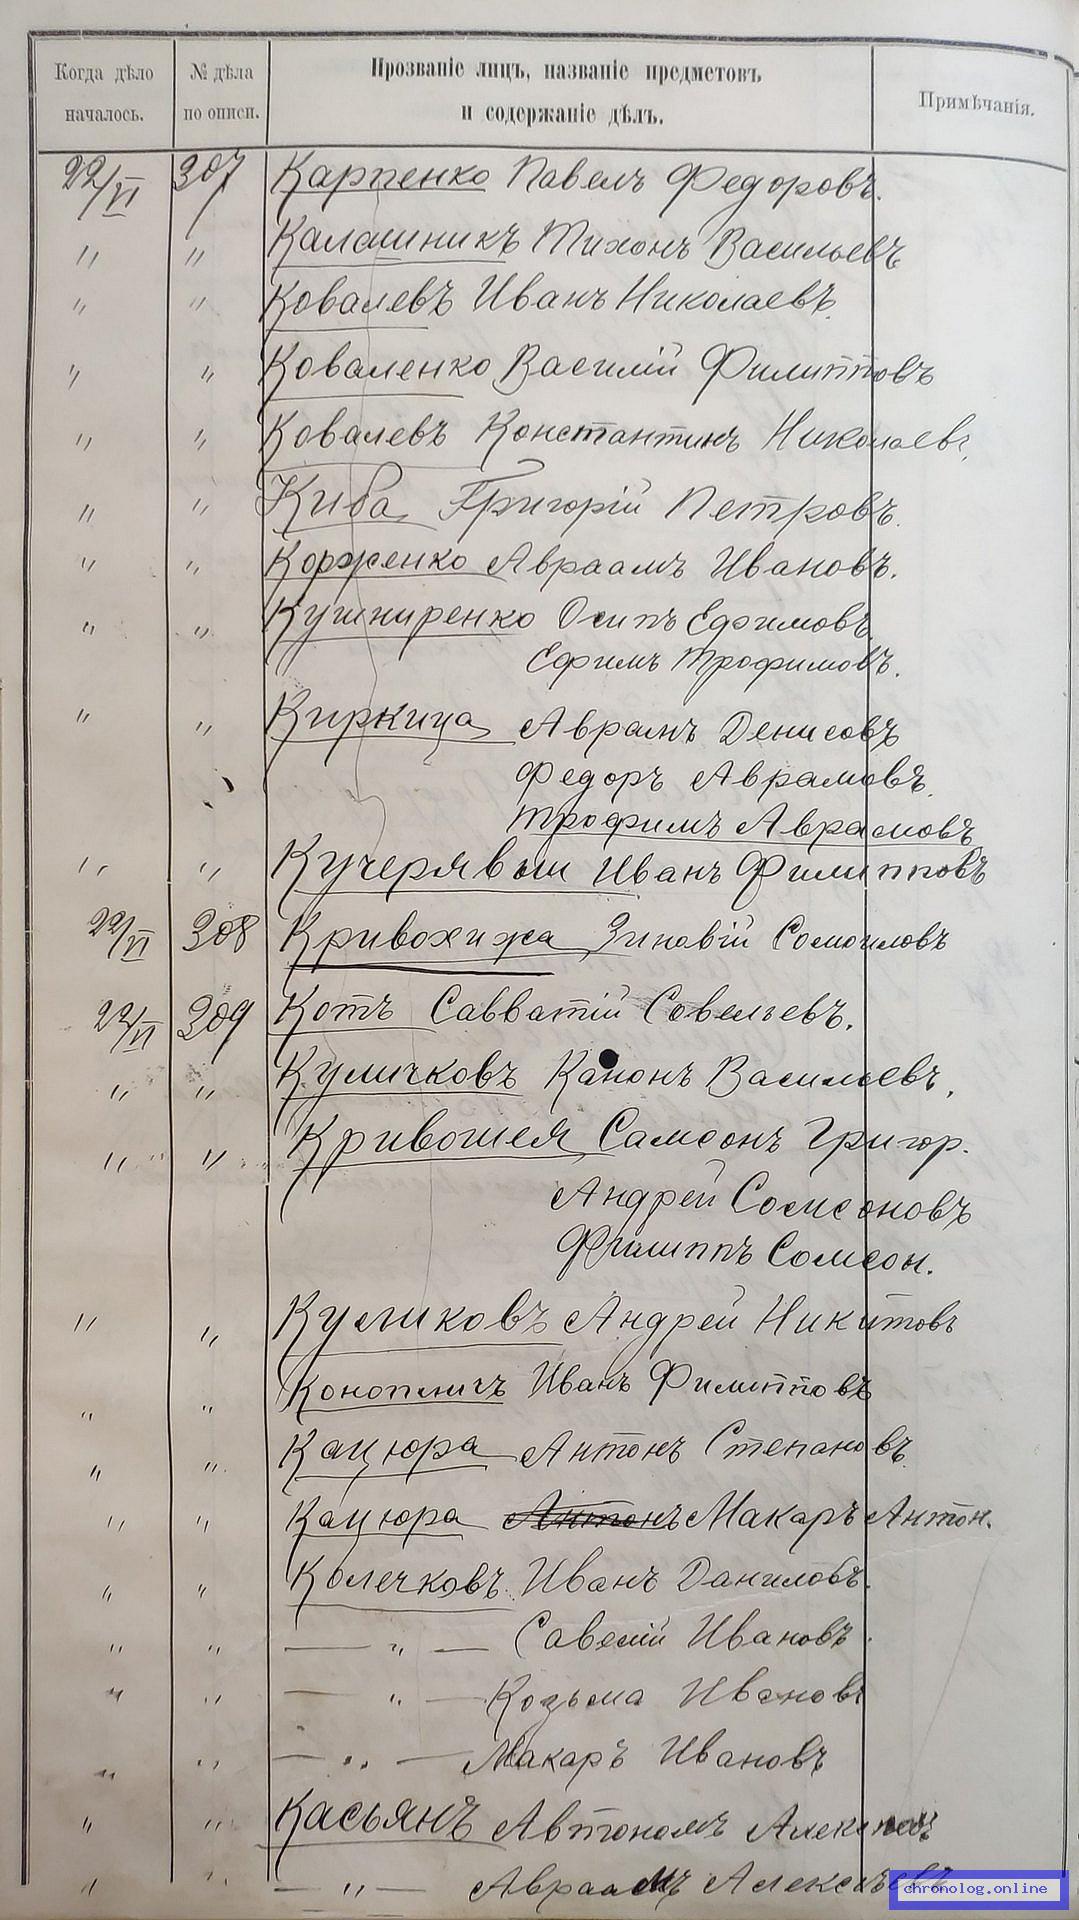 Когда дѣло началось.
№ дѣла по описи.
Прозваніе лицъ, названіе предметовъ и содержаніе дѣлъ.
Примѣчанія.
22/VI 307 Карпенко Павелъ Федоровъ.
" " Калашникъ Тихонъ Васильевъ
" " Ковалевъ Иванъ Николаевъ.
" " Коваленко Василій Филипповъ
" " Ковалевъ Константинъ Николаевъ.
" " Киба Григорій Петровъ.
" " Корженко Авраамъ Ивановъ.
" " Кушниренко Осипъ Ефимовъ
Ефимъ Трофимовъ.
" " Киркица Аврамъ Денисовъ
Федоръ Аврамовъ.
Трофимъ Аврамовъ
" " Кучерявый Иванъ Филипповъ
22/VI 308 Кривохижа Зиновій Самоиловъ
22/VI 309 Котъ Савватій Савельевъ.
" " Куличковъ Канонъ Васильевъ.
" " Кривошея Самсонъ Григор.
Андрей Самсоновъ
Филиппъ Самсон.
" " Куликовъ Андрей Никитовъ
" " Конопличъ Иванъ Филипповъ
" " Кацюра Антонъ Степановъ
" " Кацюра Антонъ Макаръ Антон.
" " Колечковъ Иванъ Даниловъ.
" " — " — Савелій Ивановъ.
" " — " — Козьма Ивановъ
" " — " — Макаръ Ивановъ
" " Касьянъ Автономъ
" " — " — Авраамъ Алексѣевъ
chronolog.online